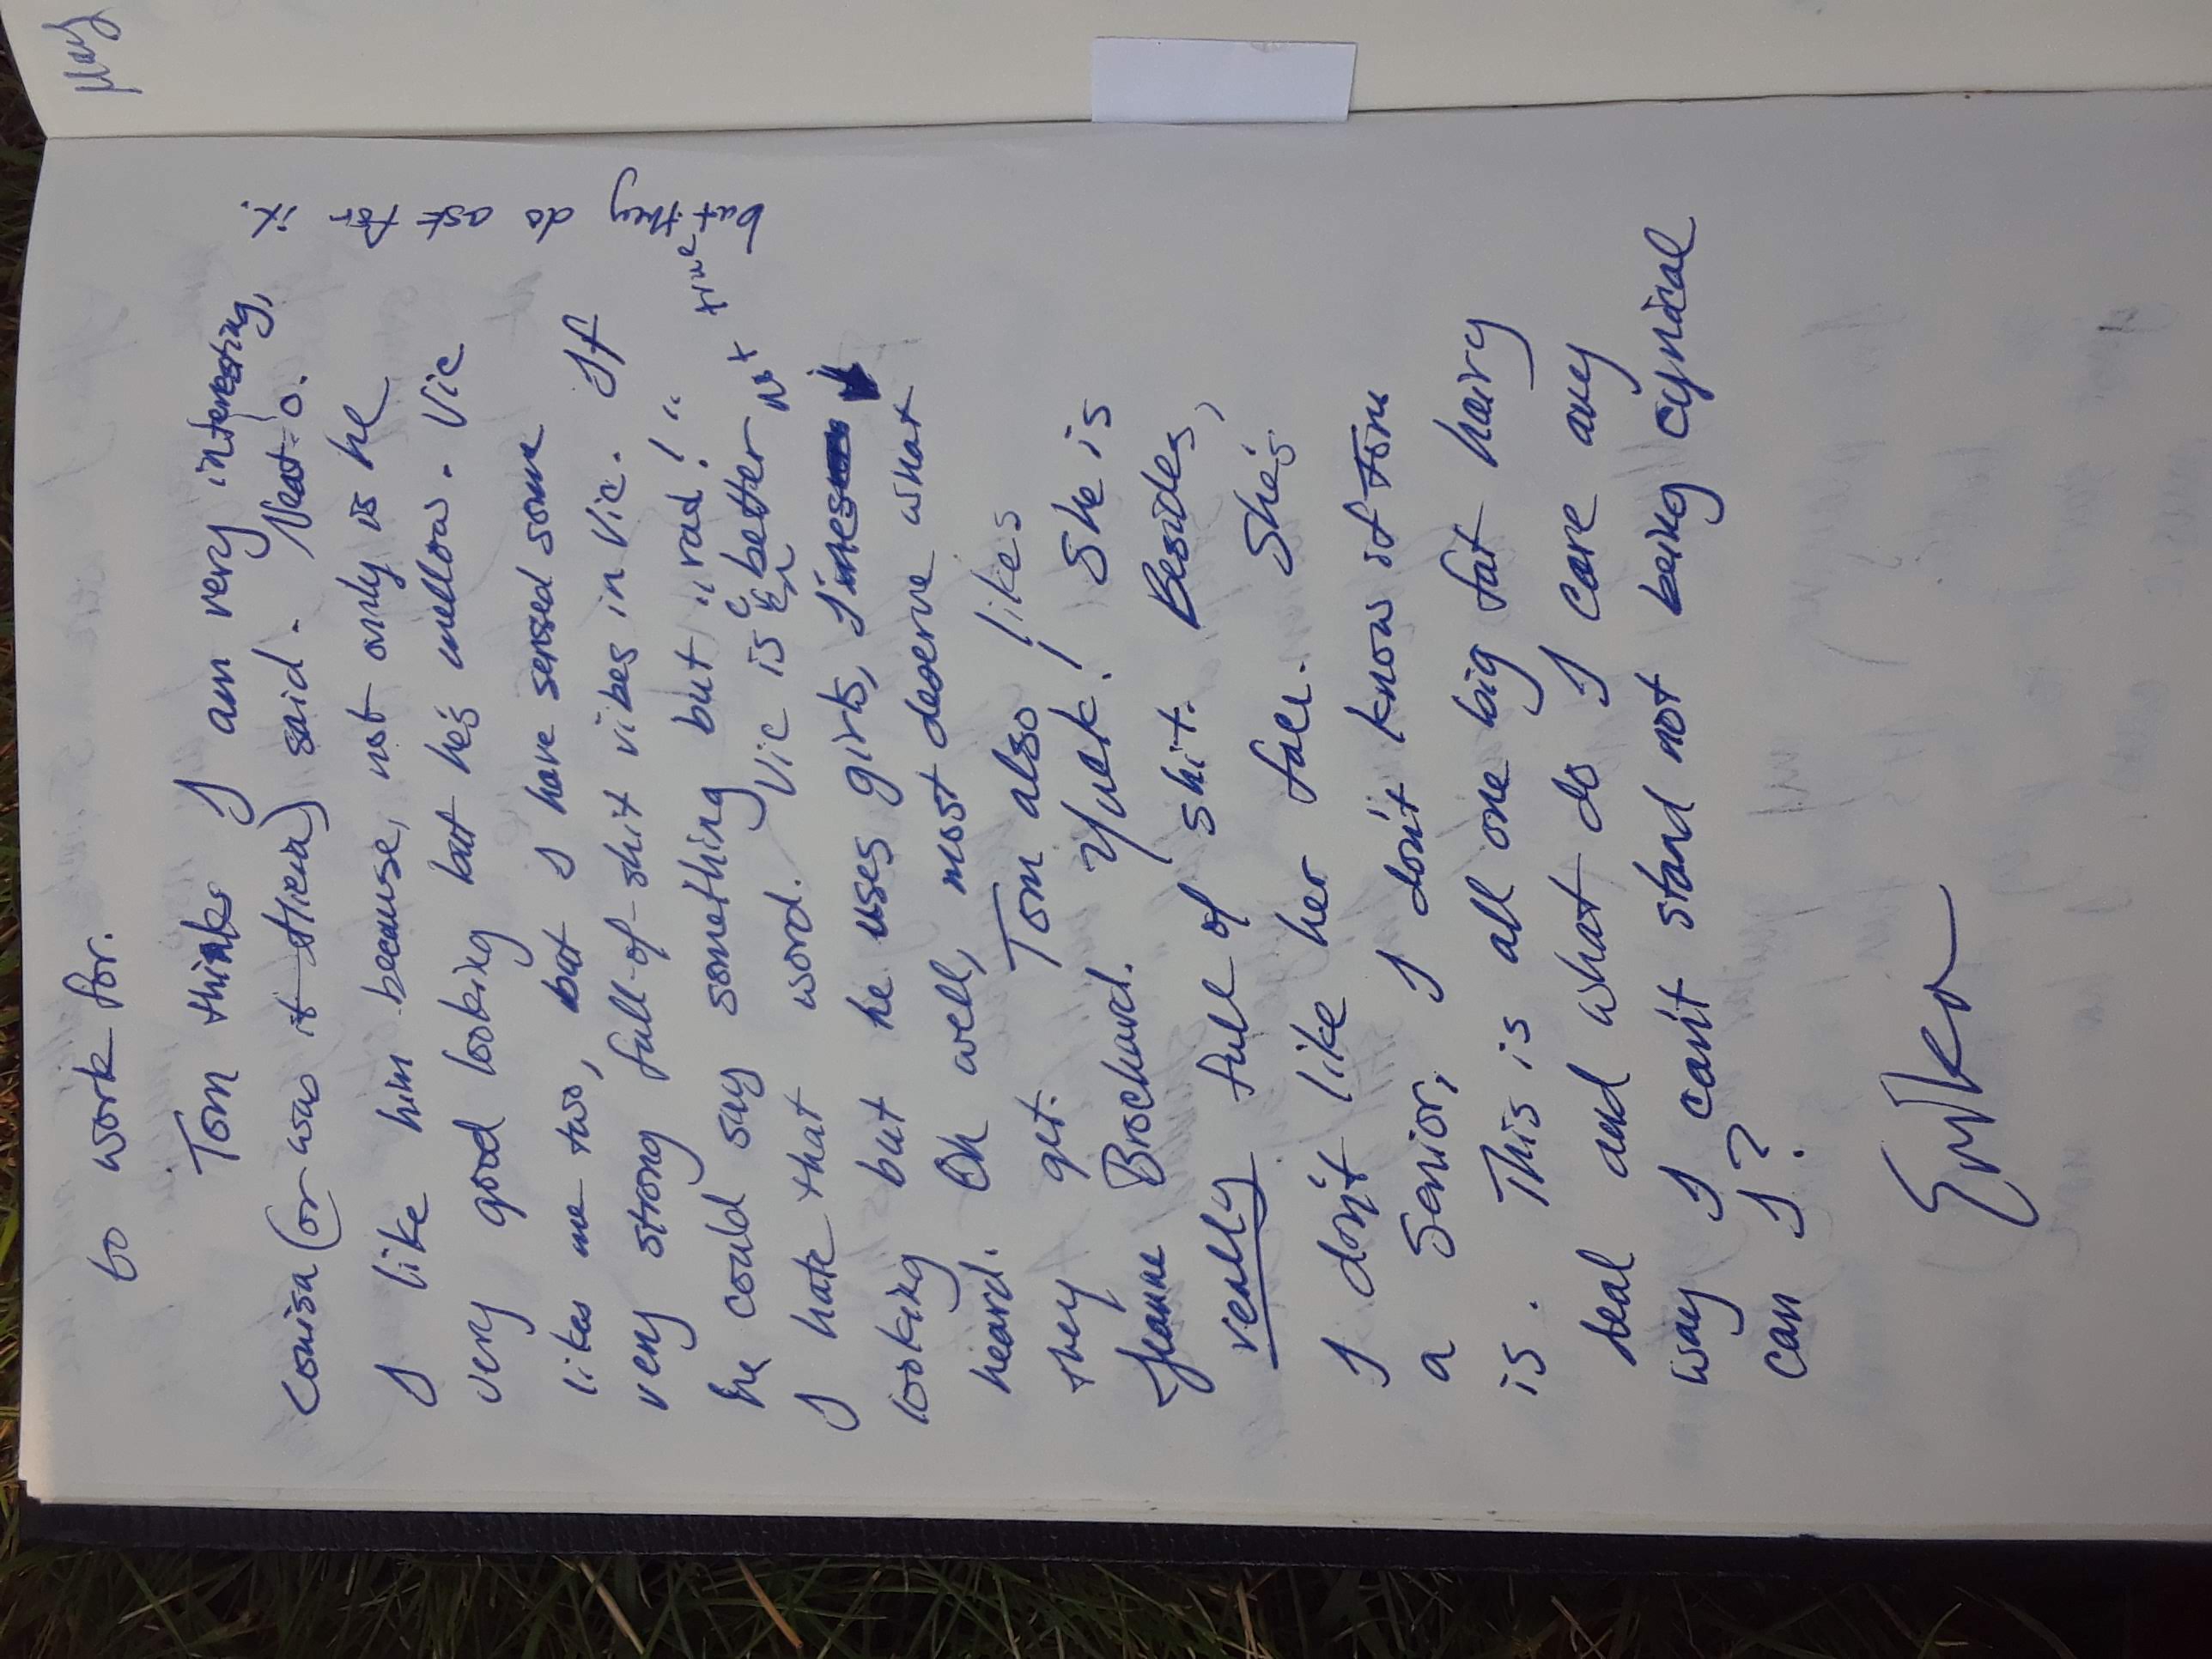 to work for.
Tom thinks I am very interesting,
Louisa (or was it Athena) said. Neat-o.
I like him because, not only is he
very good looking but he's mellow. Vic
likes me two, but I have sensed some
very strong full-of-shit vibes in Vic. If
he could say something but "rad!"
I hate that word. Vic is better Not true
looking but he uses girls, I
heard. Oh well, most deserve what
they get. Tom also likes
Jeanne Brochard. Yuck! She is
really full of shit. Besides,
I don't like her face. She's
a Senior, I don't know if Tom
is. This is all one big fat hairy
deal and what do I care any
way I can't stand not being cynical
can I?
but
they
do
ask
for
it.